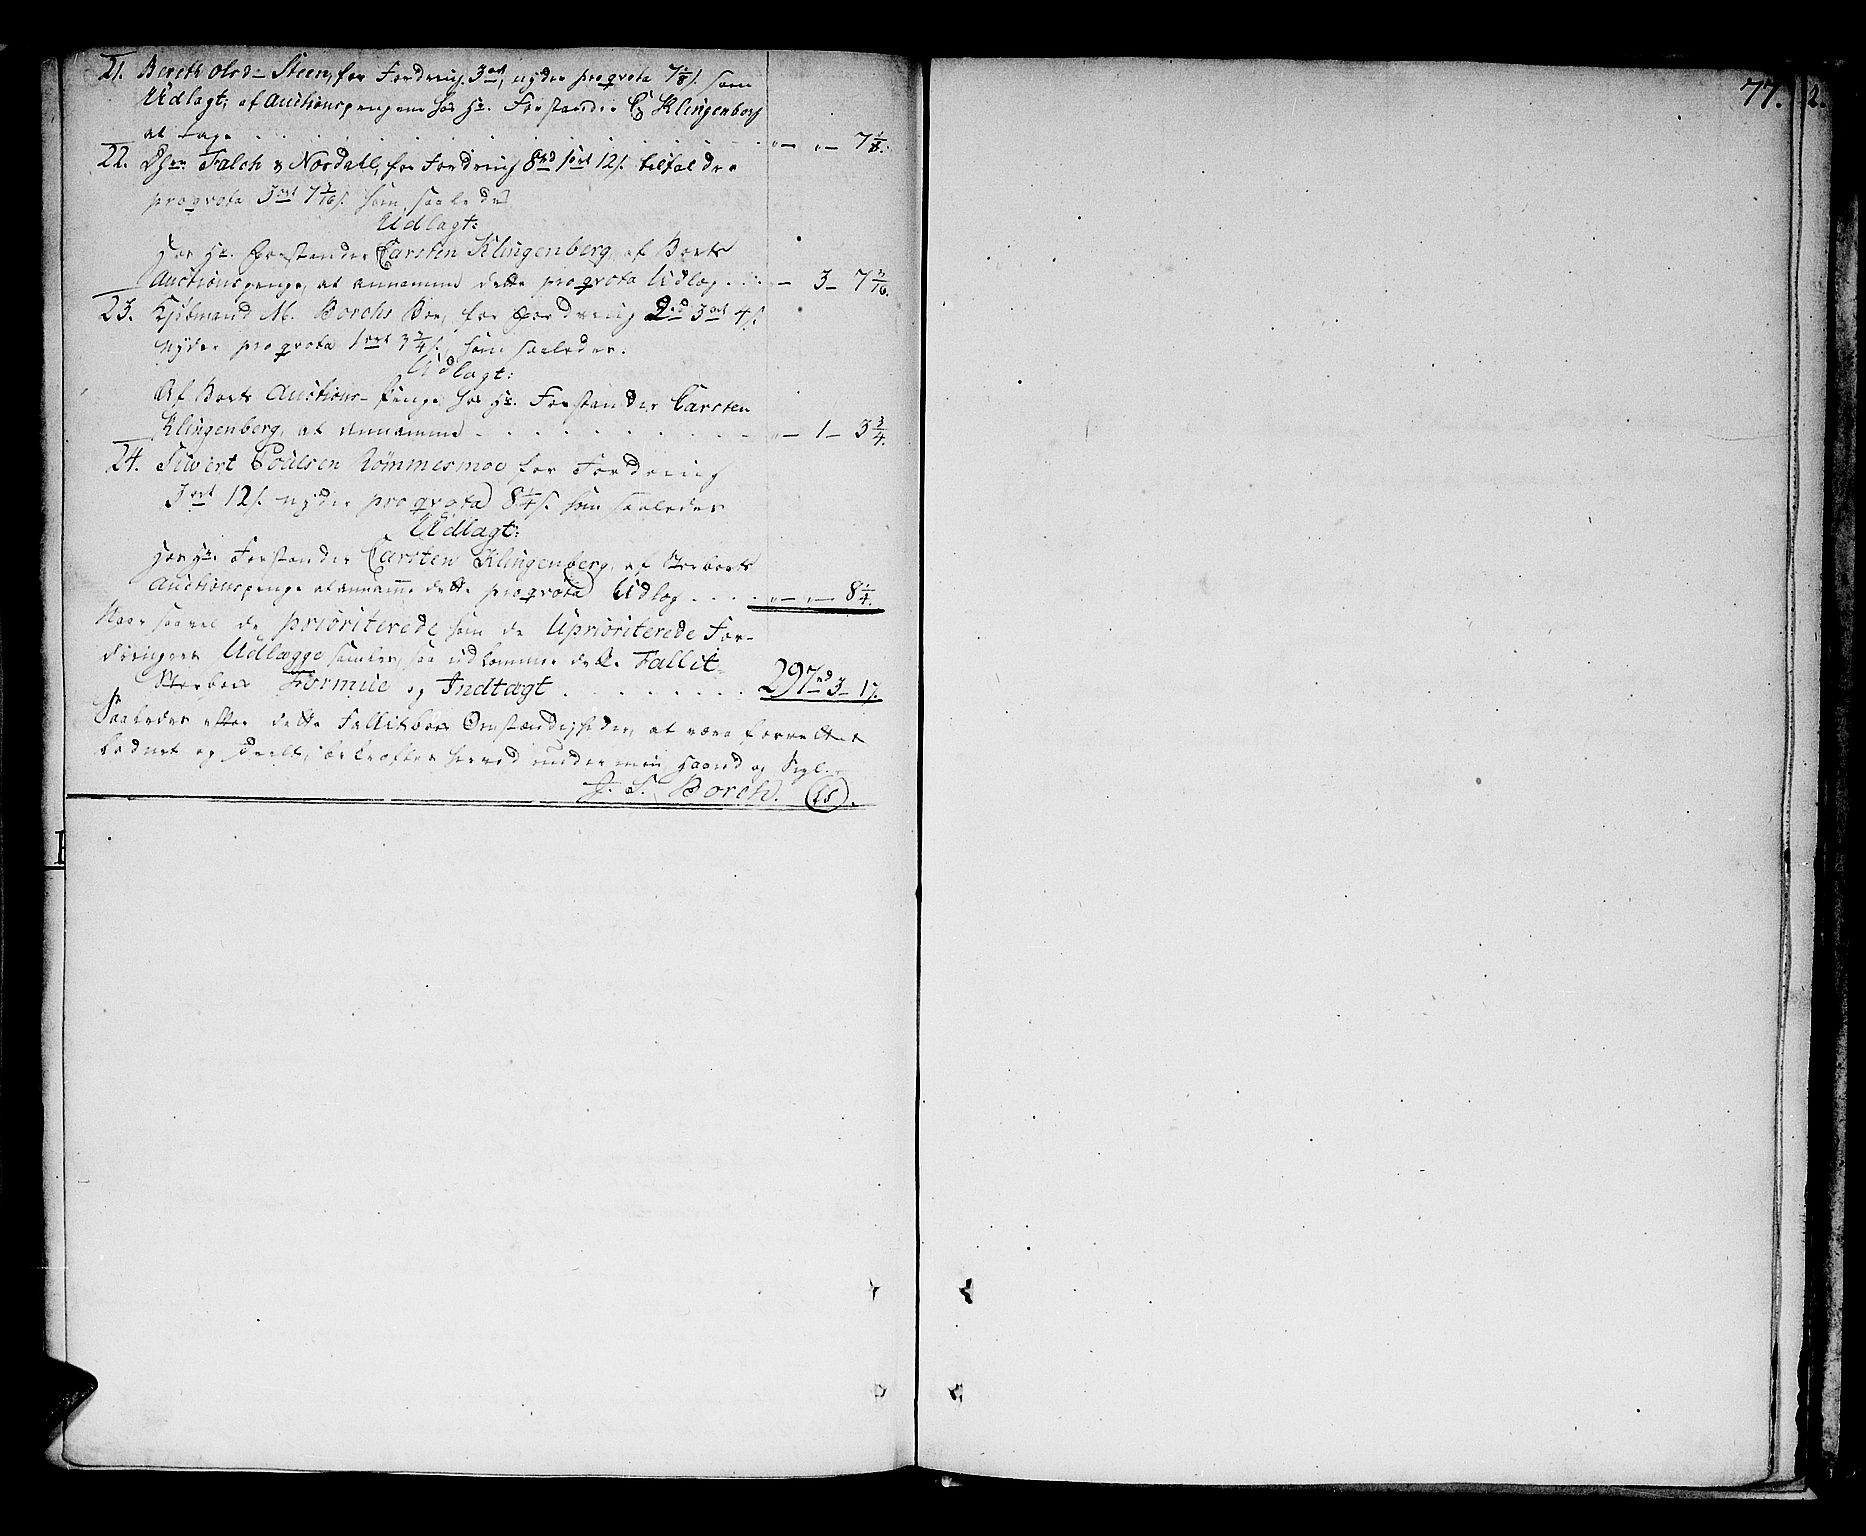 77. 2.
21. Bereth Olsd- Steen, for Fordring 3 ort, nyder pro qvota 7 1/8 s. som
Udlagt: af Auctionspengene hos Hr. Forstander C. Klingenberg
at tage . . . . . . . . „ — „ — 7 1/8.
22. Dhrr. Falch & Nordall, for Fordring 8 rd 1 ort 12 s. tilfalder
pro qvota 3 ort 7 7/16 s. som saaledes
Udlagt:
Hos Hr. Forstander Carsten Klingenberg, af Boets
Auctionspenge, at annamme dette pro qvota Udlæg . . . — 3 — 7 7/16.
23. Kjøbmand M. Borchs Boe, for Fordring 2 rd 3 ort 4 s.
nyder pro qvota 1 ort 3 3/4 s. som saaledes.
Udlagt:
Af Boets Auctions-Penge hos Hr. Forstander Carsten
Klingenberg, at annamme . . . . . . „ — 1 — 3 3/4.
24. Siwert Poulsen Rømmesmoe for Fordring
3 ort 12 s. nyder pro qvota 8 1/4 s. som saaledes
Udlagt:
Hos Hr. Forstander Carsten Klingenberg, af Sterboets
Auctionspenge at annamme dette pro qvota Udlæg . . . . „ — „ — 8 1/4.
Naar saavel de prioriterede som de Uprioriterede For-
dringers Udlægge samles, saa udkommer dette Fallit-
Sterboes Formue og Indtægt . . . . . . . 297 rd 3 — 17.
Saaledes efter dette Fallitboes Omstændigheder, at være forvaltet
og deelt, bekræftes herved under min Haand og Segl.
J. S. Borch. (LS).